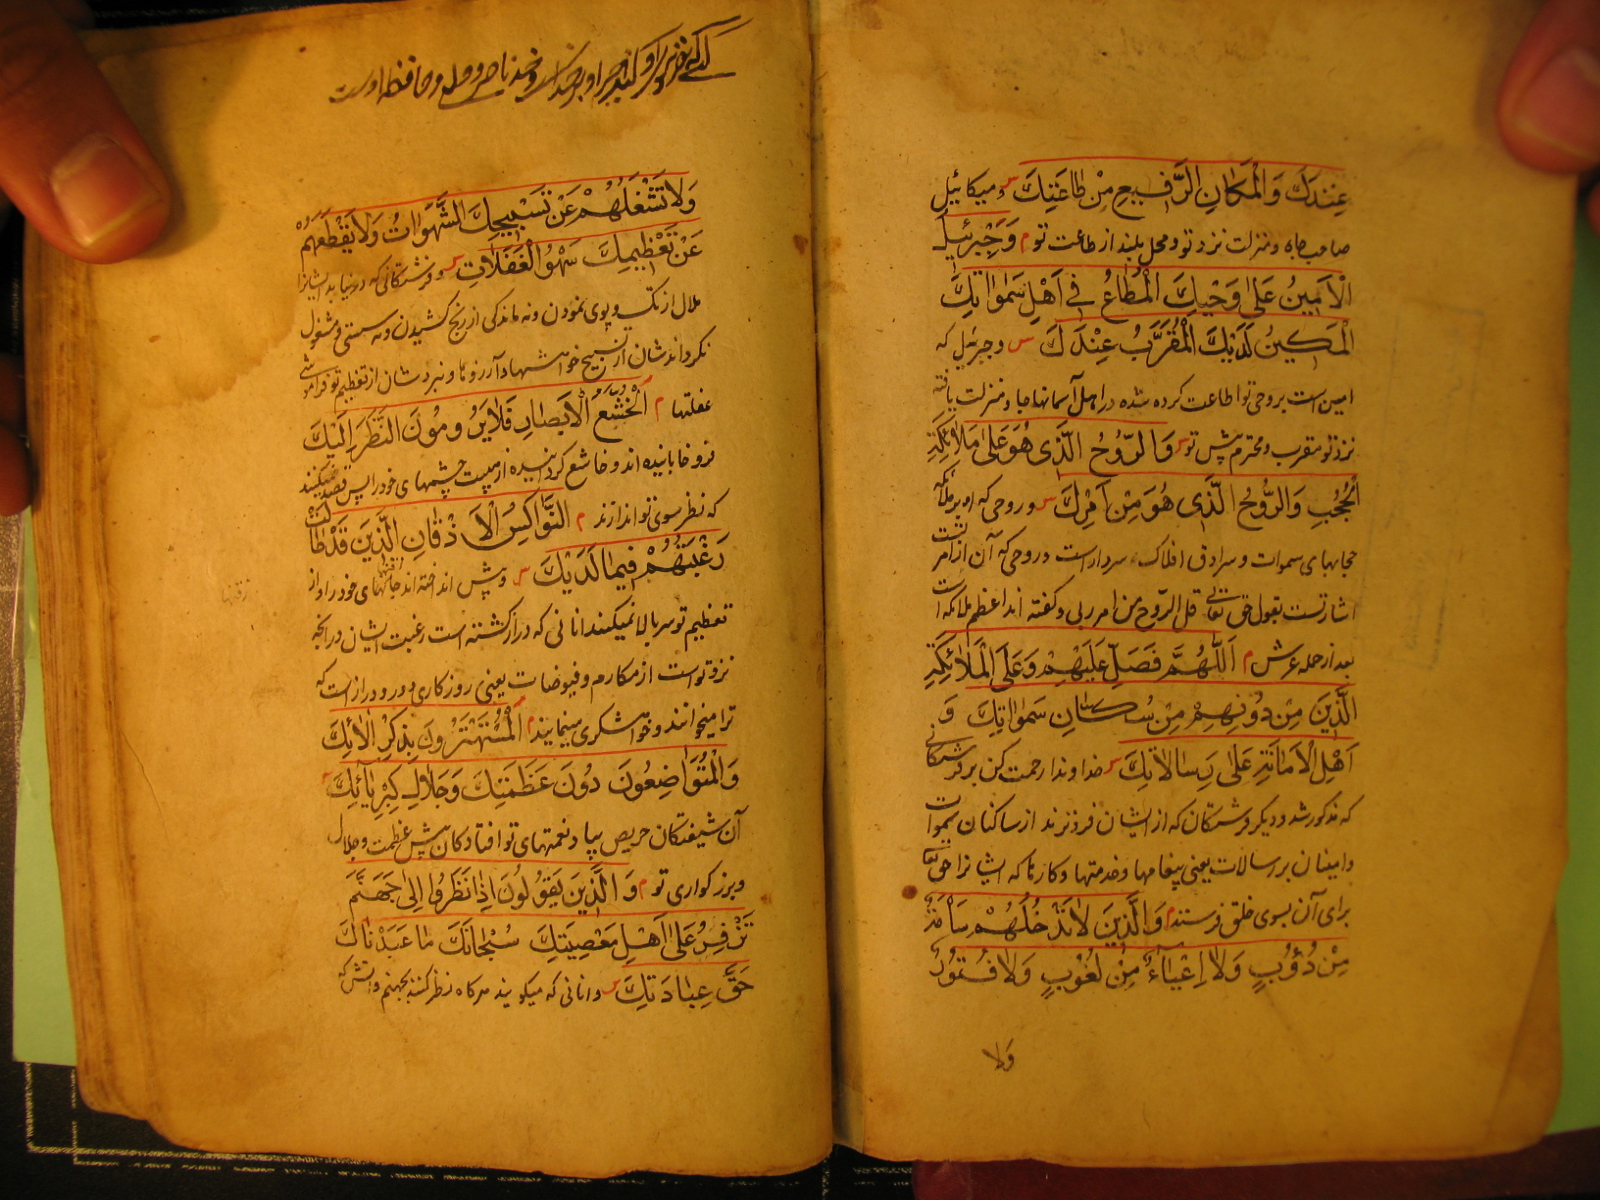 عِنْدَكَ وَالْمَكَانِ الرَّفِيعِ مِنْ طَاعَتِكَ س و میکائیل
صاحب جاه و منزلت نزد تو و محل بلند از طاعت تو م وَجِبْرَئِيلُ
الْاَمِينُ عَلٰى وَحْيِكَ الْمُطَاعُ فِي اَهْلِ سَمٰوَاتِكَ
الْمَكِينُ لَدَيْكَ الْمُقَرَّبُ عِنْدَكَ س و جبرئیل که
امین است بر وحی تو اطاعت کرده شده در اهل آسمانها جا و منزلت یافته
نزد تو مقرب و محترم پیش تو س وَالرُّوحُ الَّذِي هُوَ عَلٰى مَلَائِكَةِ
الْحُجُبِ وَالرُّوحُ الَّذِي هُوَ مِنْ اَمْرِكَ س و روحی که او بر ملائکه
حجابهای سموات و سرادق افلاک سردار است و روحی که آن از امر تست
اشارتست بقول حق تعالی قل الروح من امر ربی و گفته اند اعظم ملائکه است
بعد از حمله عرش م اَللّٰهُمَّ فَصَلِّ عَلَيْهِمْ وَعَلَى الْمَلَائِكَةِ
الَّذِينَ مِنْ دُونِهِمْ مِنْ سُكَّانِ سَمٰوَاتِكَ وَ
اَهْلِ الْاَمَانَةِ عَلٰى رِسَالَاتِكَ س خداوندا رحمت کن بر فرشتگانی
که مذکور شد و دیگر فرشتگان که از ایشان فروترند از ساکنان سموات
و امینان بر رسالات یعنی پیغامها و خدمتها و کارها که ایشانرا حق تعالی
برای آن بسوی خلق فرستد م وَالَّذِينَ لَا تَدْخُلُهُمْ سَأْمَةٌ
مِنْ دُؤُبٍ وَلَا اِعْيَاءٌ مِنْ لُغُوبٍ وَلَا فُتُورٌ
ولا
ناصر و ولی و حافظ اوست
وَلَا تَشْغَلُهُمْ عَنْ تَسْبِيحِكَ الشَّهَوَاتُ وَلَا يَقْطَعُهُمْ
عَنْ تَعْظِيمِكَ سَهْوُ الْغَفَلَاتِ س و فرشتگانی که درنیابد ایشانرا
ملال از تک و پوی نمودن و نه ماندگی از رنج کشیدن و نه سستی و مشغول
نگرداند شان از تسبیح خواهشها و آرزوها و نبرد شان از تعظیم تو فراموشی
غفلتها م اَلْخُشَّعُ الْاَبْصَارِ فَلَا يَرُومُونَ النَّظَرَ اِلَيْكَ
فرو خابانیده اند و خاشع گردانیده از هیبت چشمهای خود را پس قصد نمیکنند
که نظر سوی تو اندازند م النَّوَاكِسُ الْاَذْقَانِ الَّذِينَ قَدْ طَالَتْ
رَغْبَتُهُمْ فِيمَا لَدَيْكَ س و پیش انداخته اند چانهای خود را و از
تعظیم تو سر بالا نمیکنند انانی که دراز گشته است رغبت ایشان در آنچه
نزد تو است از مکارم و فیوضات یعنی روزکاری دور و دراز است که
ترا میخوانند و خواهشگری مینمایند م الْمُسْتَهْتَرُونَ بِذِكْرِ اٰلَائِكَ
وَالْمُتَوَاضِعُونَ دُونَ عَظَمَتِكَ وَجَلَالِ كِبْرِيَائِكَ س
آن شیفتگان حریص بیاد نعمتهای تو افتادگان پیش عظمت و جلال
و بزرگواری تو م وَالَّذِينَ يَقُولُونَ اِذَا نَظَرُوا اِلٰى جَهَنَّمَ
تَزْفِرُ عَلٰى اَهْلِ مَعْصِيَتِكَ سُبْحَانَكَ مَا عَبَدْنَاكَ
حَقَّ عِبَادَتِكَ س و انانی که میکویند هرگاه نظر کنند بجهنم و آتش که